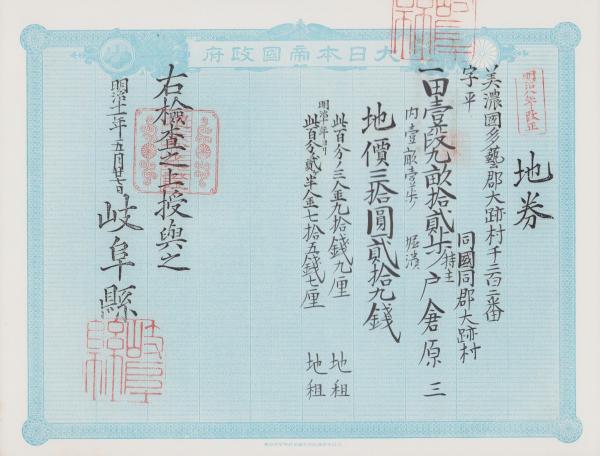 大日本帝國政府
地券
明治八年改正
美濃國多藝郡大跡村千三百三番
字平
同國同郡大跡村
一田壹段九畝拾貳歩
持主
戸倉原三
内壹畝壹歩
堀潰
地價三拾圓貳拾九錢
此百分ノ三金九拾錢九厘
地租
明治十年ヨリ
此百分ノ貳半金七拾五錢七厘
地租
右檢査之上授與之
明治十一年五月廿七日
岐阜縣